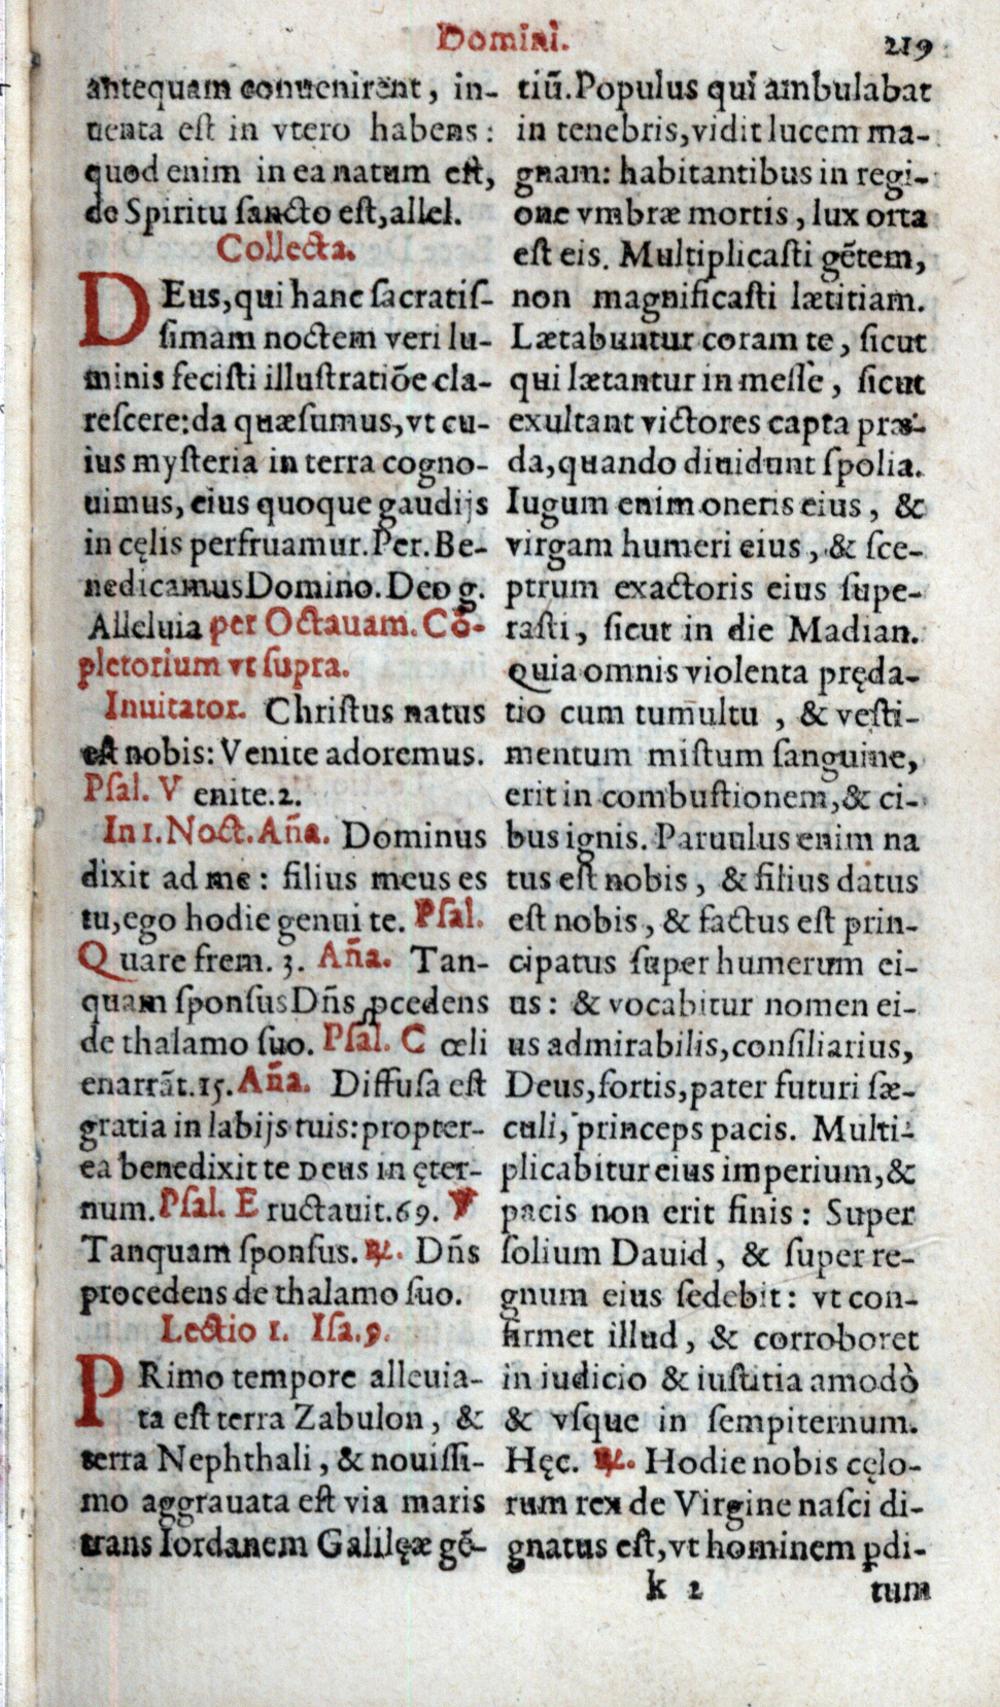 Domini.
219
antequam conuenirent, in-
uenta eſt in vtero habens:
quod enim in ea natum eſt,
de Spiritu ſancto eſt, allel.
Collecta.
DEus, qui hanc ſacratiſ-
ſimam noctem veri lu-
minis feciſti illuſtratiõe cla-
reſcere: da quæſumus, vt cu-
ius myſteria in terra cogno-
uimus, eius quoque gaudijs
in cęlis perfruamur. Per. Be-
nedicamus Domino. Deo g.
Alleluia per Octauam. Cõ-
pletorium vt ſupra.
Inuitator. Chriſtus natus
eſt nobis: Venite adoremus.
Pſal. Venite. 2.
In 1. Noct. Aña. Dominus
dixit ad me: filius meus es
tu, ego hodie genui te. Pſal.
Quare frem. 3. Aña. Tan-
quam ſponſus Dñs ꝓcedens
de thalamo ſuo. Pſal. Cœli
enarrãt. 15. Aña. Diffuſa eſt
gratia in labijs tuis: propter-
ea benedixit te Deus in ęter-
num. Pſal. Eructauit. 69. ℣
Tanquam ſponſus. ℟. Dñs
procedens de thalamo ſuo.
Lectio 1. Iſa. 9.
PRimo tempore alleuia-
ta eſt terra Zabulon, &
terra Nephthali, & nouiſſi-
mo aggrauata eſt via maris
trans Iordanem Galilęæ gẽ-
tiũ. Populus qui ambulabat
in tenebris, vidit lucem ma-
gnam: habitantibus in regi-
one vmbræ mortis, lux orta
eſt eis. Multiplicaſti gẽtem,
non magnificaſti lætitiam.
Lætabuntur coram te, ſicut
qui lætantur in meſſe, ſicut
exultant victores capta præ-
da, quando diuidunt ſpolia.
Iugum enim oneris eius, &
virgam humeri eius, & ſce-
ptrum exactoris eius ſupe-
raſti, ſicut in die Madian.
Quia omnis violenta pręda-
tio cum tumultu, & veſti-
mentum miſtum ſanguine,
erit in combuſtionem, & ci-
bus ignis. Paruulus enim na
tus eſt nobis, & filius datus
eſt nobis, & factus eſt prin-
cipatus ſuper humerum ei-
us: & vocabitur nomen ei-
us admirabilis, conſiliarius,
Deus, fortis, pater futuri ſæ-
culi, princeps pacis. Multi-
plicabitur eius imperium, &
pacis non erit finis: Super
ſolium Dauid, & ſuper re-
gnum eius ſedebit: vt con-
firmet illud, & corroboret
in iudicio & iuſtitia amodò
& vſque in ſempiternum.
Hęc. ℟. Hodie nobis cęlo-
rum rex de Virgine naſci di-
gnatus eſt, vt hominem ꝑdi-
k 2
tum